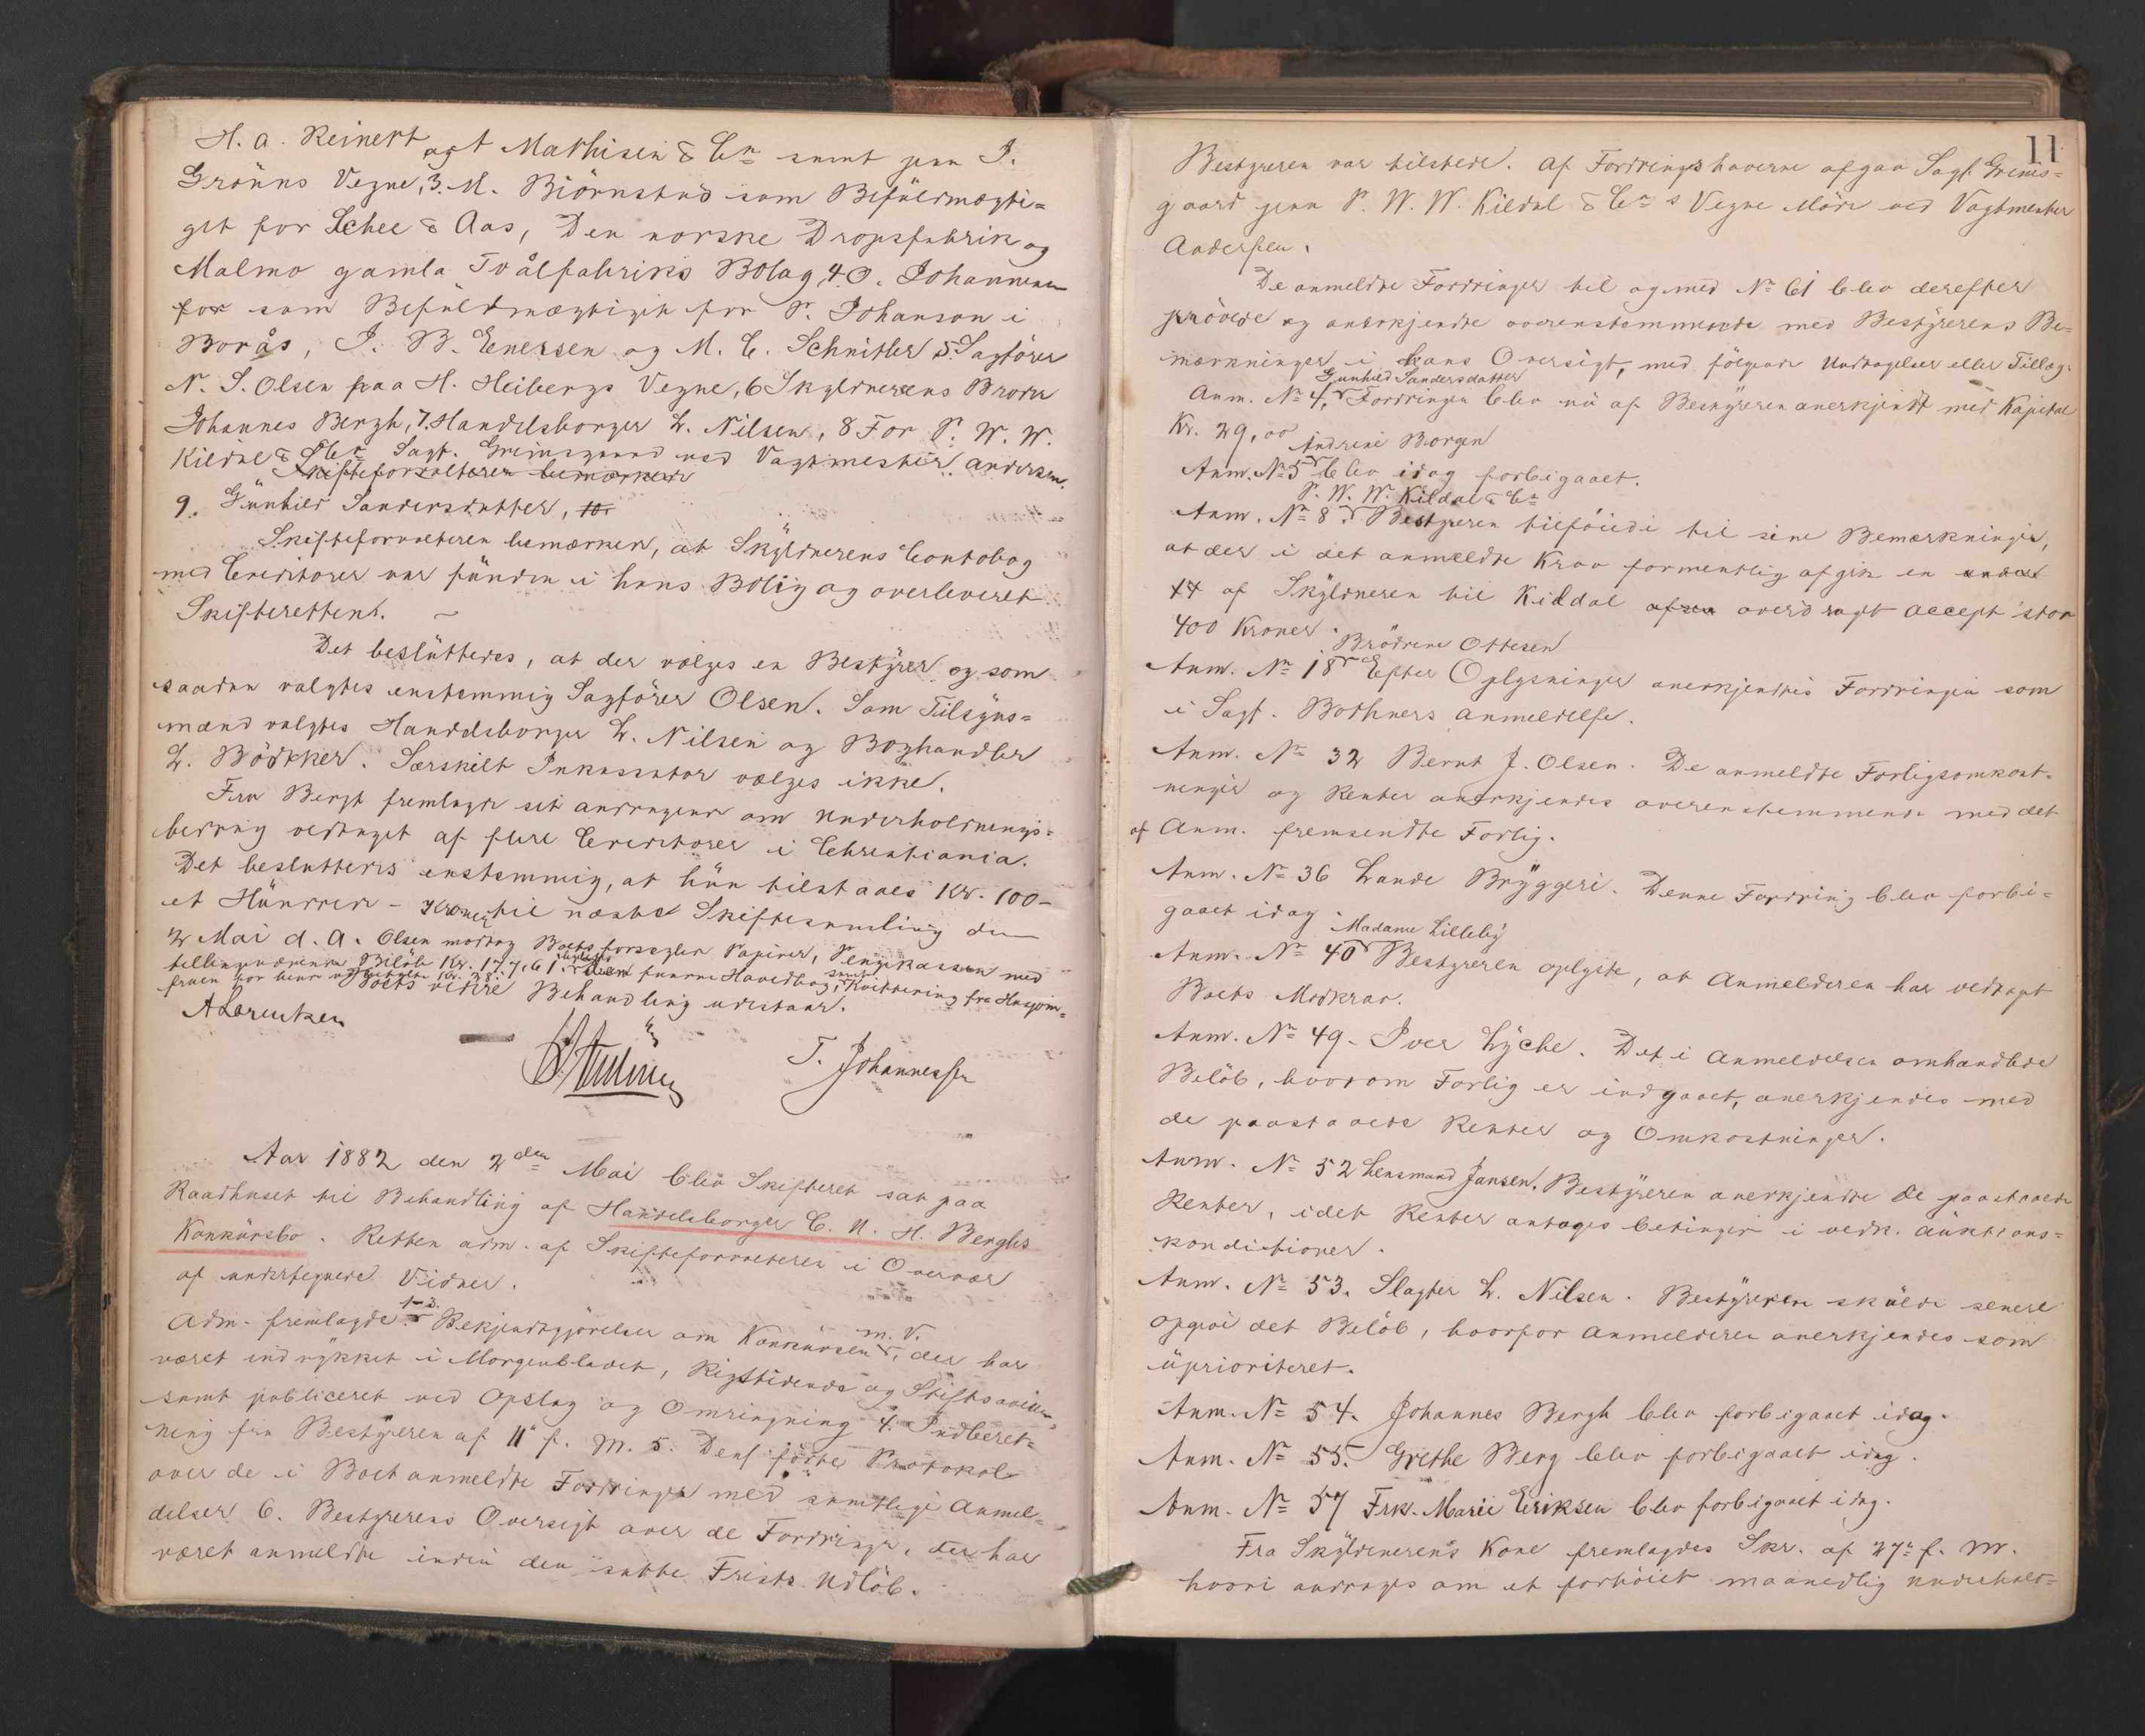 H. A. Reinert agt Mathisen & Co samt paa J.
Grönns Vegne, 3. M. Biörnstad som Befuldmægti=
get for Schee & Aas, Den norske Dropsfabrik og
Malmo gamla Tvålfabriks Bolag, 4. O. Johannesen
for som Befuldmægtiget for P. Johanson i
Borås, J. B. Enersen og M. C. Schnitler 5. Sagförer
N. S. Olsen paa H. Heibergs Vegne, 6 Skyldnerens Broder
Johannes Bergh, 7. Handelsborger L. Nilsen, 8 For P. W. W.
Kildal & Co Sagf. Grimsgaard ved Vagtmester Andersen.
Skifteforvalteren bemærkede
9. Gunhild Sandersdatter, 10.
Skifteforvalteren bemærker, at Skyldnerens Contobog
med Creditorer var funden i hans Bolig og overleveret
Skifteretten.
Det besluttedes, at der vælges en Bestyrer og som
saadan valgtes enstemmig Sagförer Olsen. Som Tilsyns=
mænd valgtes Handelsborger L. Nilsen og Boghandler
L. Bödtker. Særskilt Inkassator vælges ikke.
Fru Bergh fremlagde sit andragende om Underholdnings=
bidrag vedtaget af flere Creditorer i Christiania.
Det besluttedes enstemmig, at hun tilstaaes Kr. 100 -
et Hundrede - Kroner til næste Skiftesamling den
2 Mai d. A. Olsen modtog Boets forseglede Papirer, Pengekassen med
tellingsudvisende Belöb Kr. 177,61. den fundne Hovedbog, samt Kvittering fra Husjom=
fruen for hende udbetalte Kr. 28.
Boets videre Behandling udestaar.
A Lorentzen
T. Johannessen
Aar 1882 den 2den Mai blev Skifteret sat paa
Raadhuset til Behandling af Handelsborger C. N. H. Berghs
Konkursbo. Retten adm. af Skifteforvalteren i Overvær
af undertegnede Vidner.
Adm. fremlagde 1-3. Bekjendtgjörelser om Konkursen m. V., der har
været indrykket i Morgenbladet, Rigstidende og Stiftsavisen
samt publiceret ved Opslag og Omringning 4. Indberet=
ning fra Bestyreren af 11 f. M. 5. Dens förte Protokol
over de i Boet anmeldte Fordringer med samtlige Anmel=
delser 6. Bestyrerens Oversigt over de Fordringer, der har
været anmeldte inden den satte Frists Udlöb.
11
Bestyreren var tilstede. Af Fordringshaverne afgav Sagf. Grims=
gaard paa P. W. W. Kildal & Co s Vegne Möde ved Vagtmester
Andersen.
De anmeldte Fordringer til og med No 61 blev derefter
prövede og anerkjendte overenstemmende med Bestyrerens Be=
mærkninger i hans Oversigt, med fölgende Undtagelser eller Tillæg:
Gunhild Sandersdatter
Anm. No 4, Fordringen blev nu af Bestyreren anerkjendt med Kapital
Kr. 29,00
Andrine Borgen
Anm. No 5 blev idag forbigaaet.
P. W. W. Kildal & Co
Anm. No 8. Bestyreren tilföiede til sine Bemærkninger,
at der i det anmeldte Krav formentlig afgik en under
14 af Skyldneren til Kildal overdragt accept stor
400 Kroner.
Brödrene Ottesen
Anm. No 18 Efter Oplysninger anerkjendtes Fordringen som
i Sagf. Bothners anmeldelse.
Anm. No 32 Bernt J. Olsen. De anmeldte Forligsomkost=
ninger og Renter anerkjendes overenstemmende med det
af Anm. fremsendte Forlig.
Anm. No 36 Lande Bryggeri. Denne Fordring blev forbi=
gaaet idag.
Madame Lilleby
Anm. No 40 Bestyreren oplyste, at Anmelderen har vedtaget
Boets Modkrav.
Anm. No 49 - Iver Lyche. Det i Anmeldelsen omhandlede
Belöb, hvorom Forlig er indgaaet, anerkjendes med
de paastaaede Renter og Omkostninger.
Anm. No 52 Lensmand Jansen. Bestyreren anerkjendte de paastaaede
Renter, idet Renter antages betinget i vedk. Auktions=
konditioner.
Anm. No 53. Slagter L. Nilsen. Bestyreren skulde senere
opgive det Belöb, hvorfor Anmelderen anerkjendes som
uprioriteret.
Anm. No 54. Johannes Bergh blev forbigaaet idag.
Anm. No 55. Grethe Berg blev forbigaaet idag.
Anm. No 57 Frk. Marie Eriksen blev forbigaaet idag.
Fra Skyldnerens Kone fremlagdes Skr. af 27de f. M.
hvori andrages om et forhöiet maanedlig Underhold=